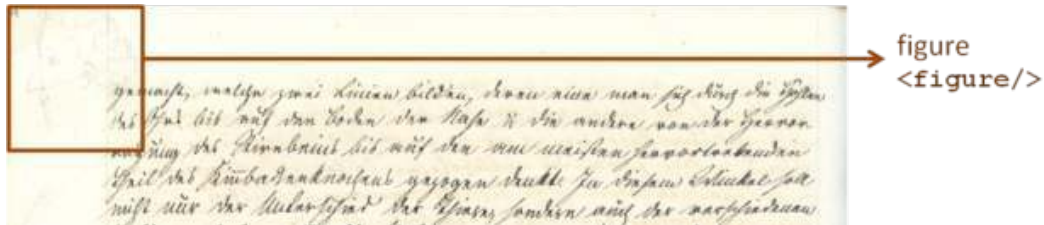 figure
<figure/>
gemacht, welche zwei Linien bilden, deren eine man sich durch die Höhlen
des Ohrs bis auf den Boden der Nase u die andere von der Hervor
ragung des Stirnbeins bis auf den am meisten hervorstechenden
Theil des Kinnbackenknochens gezogen denkt. In diesem Winkel soll
nicht nur der Unterschied der Thiere, sondern auch der verschiedenen